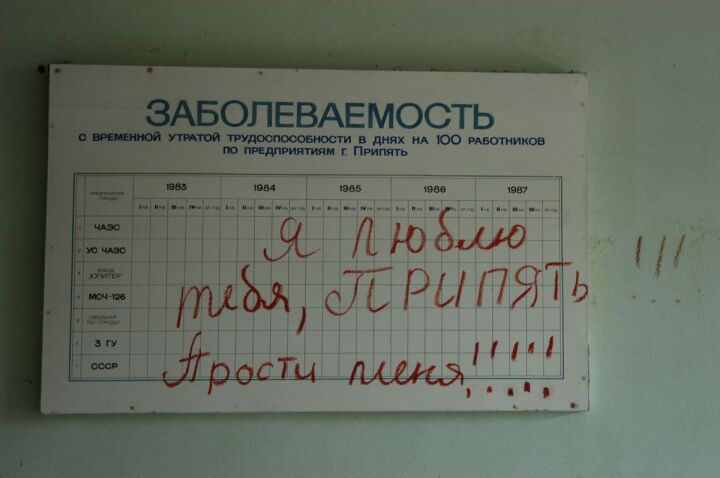 ЗАБОЛЕВАЕМОСТЬ
С ВРЕМЕННОЙ УТРАТОЙ ТРУДОСПОСОБНОСТИ В ДНЯХ НА 100 РАБОТНИКОВ
ПО ПРЕДПРИЯТИЯМ Г. ПРИПЯТЬ
ПРЕДПРИЯТИЯ ГОРОДА 1983 1984 1985 1986 1987
1 ЧАЭС
2 УС ЧАЭС
3 ЗАВОД „ЮПИТЕР"
4 МСЧ-126
5 СВОДНАЯ ПО ГОРОДУ
6 3 ГУ
7 СССР
Я люблю
тебя, ПРИПЯТЬ !!!
Прости меня, !!!!!